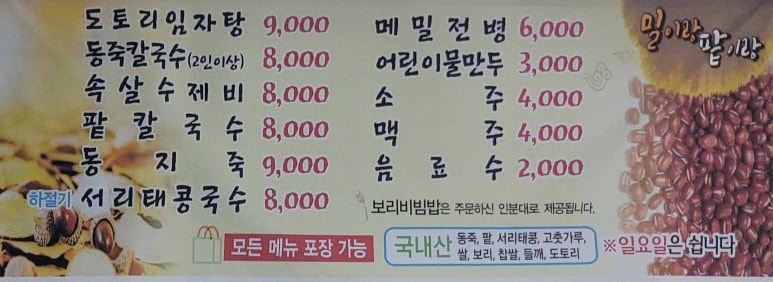 도토리임자탕 9,000
동죽칼국수(2인이상) 8,000
속살수제비 8,000
팥칼국수 8,000
동지죽 9,000
하절기 서리태콩국수 8,000
메밀전병 6,000
어린이물만두 3,000
소주 4,000
맥주 4,000
음료수 2,000
보리비빔밥은 주문하신 인분대로 제공됩니다.
밀이랑
팥이랑
모든 메뉴 포장 가능
국내산 동죽, 팥, 서리태콩, 고춧가루,
쌀, 보리, 찹쌀, 들깨, 도토리
※일요일은 쉽니다